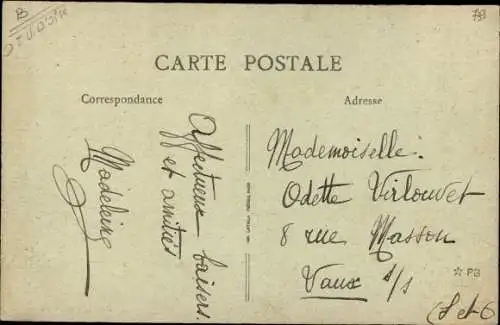 B
793
CARTE POSTALE
Correspondance
Adresse
Affectueux baisers.
et amitiés
Madeleine
Mademoiselle.
Odette Virlouvet
8 rue Masson
Vaux s/s
☆ PB
(S et O